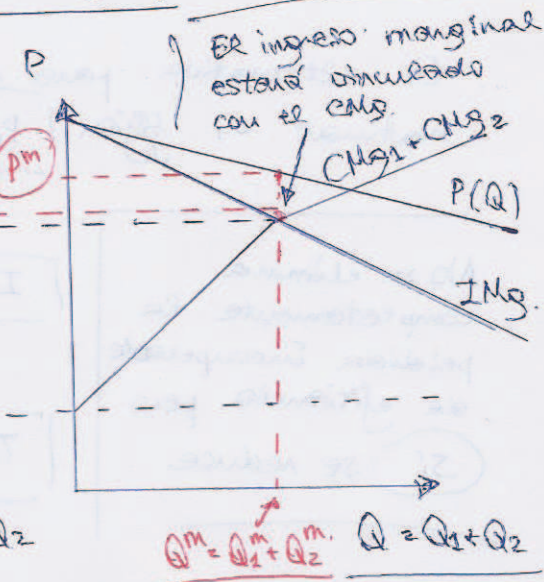 P
El ingreso marginal
estará vinculado
con el CMg
CMg1 + CMg2
P^m
P(Q)
IMg.
Q2
Q^m = Q1^m + Q2^m.
Q = Q1 + Q2
SÍ se reduce